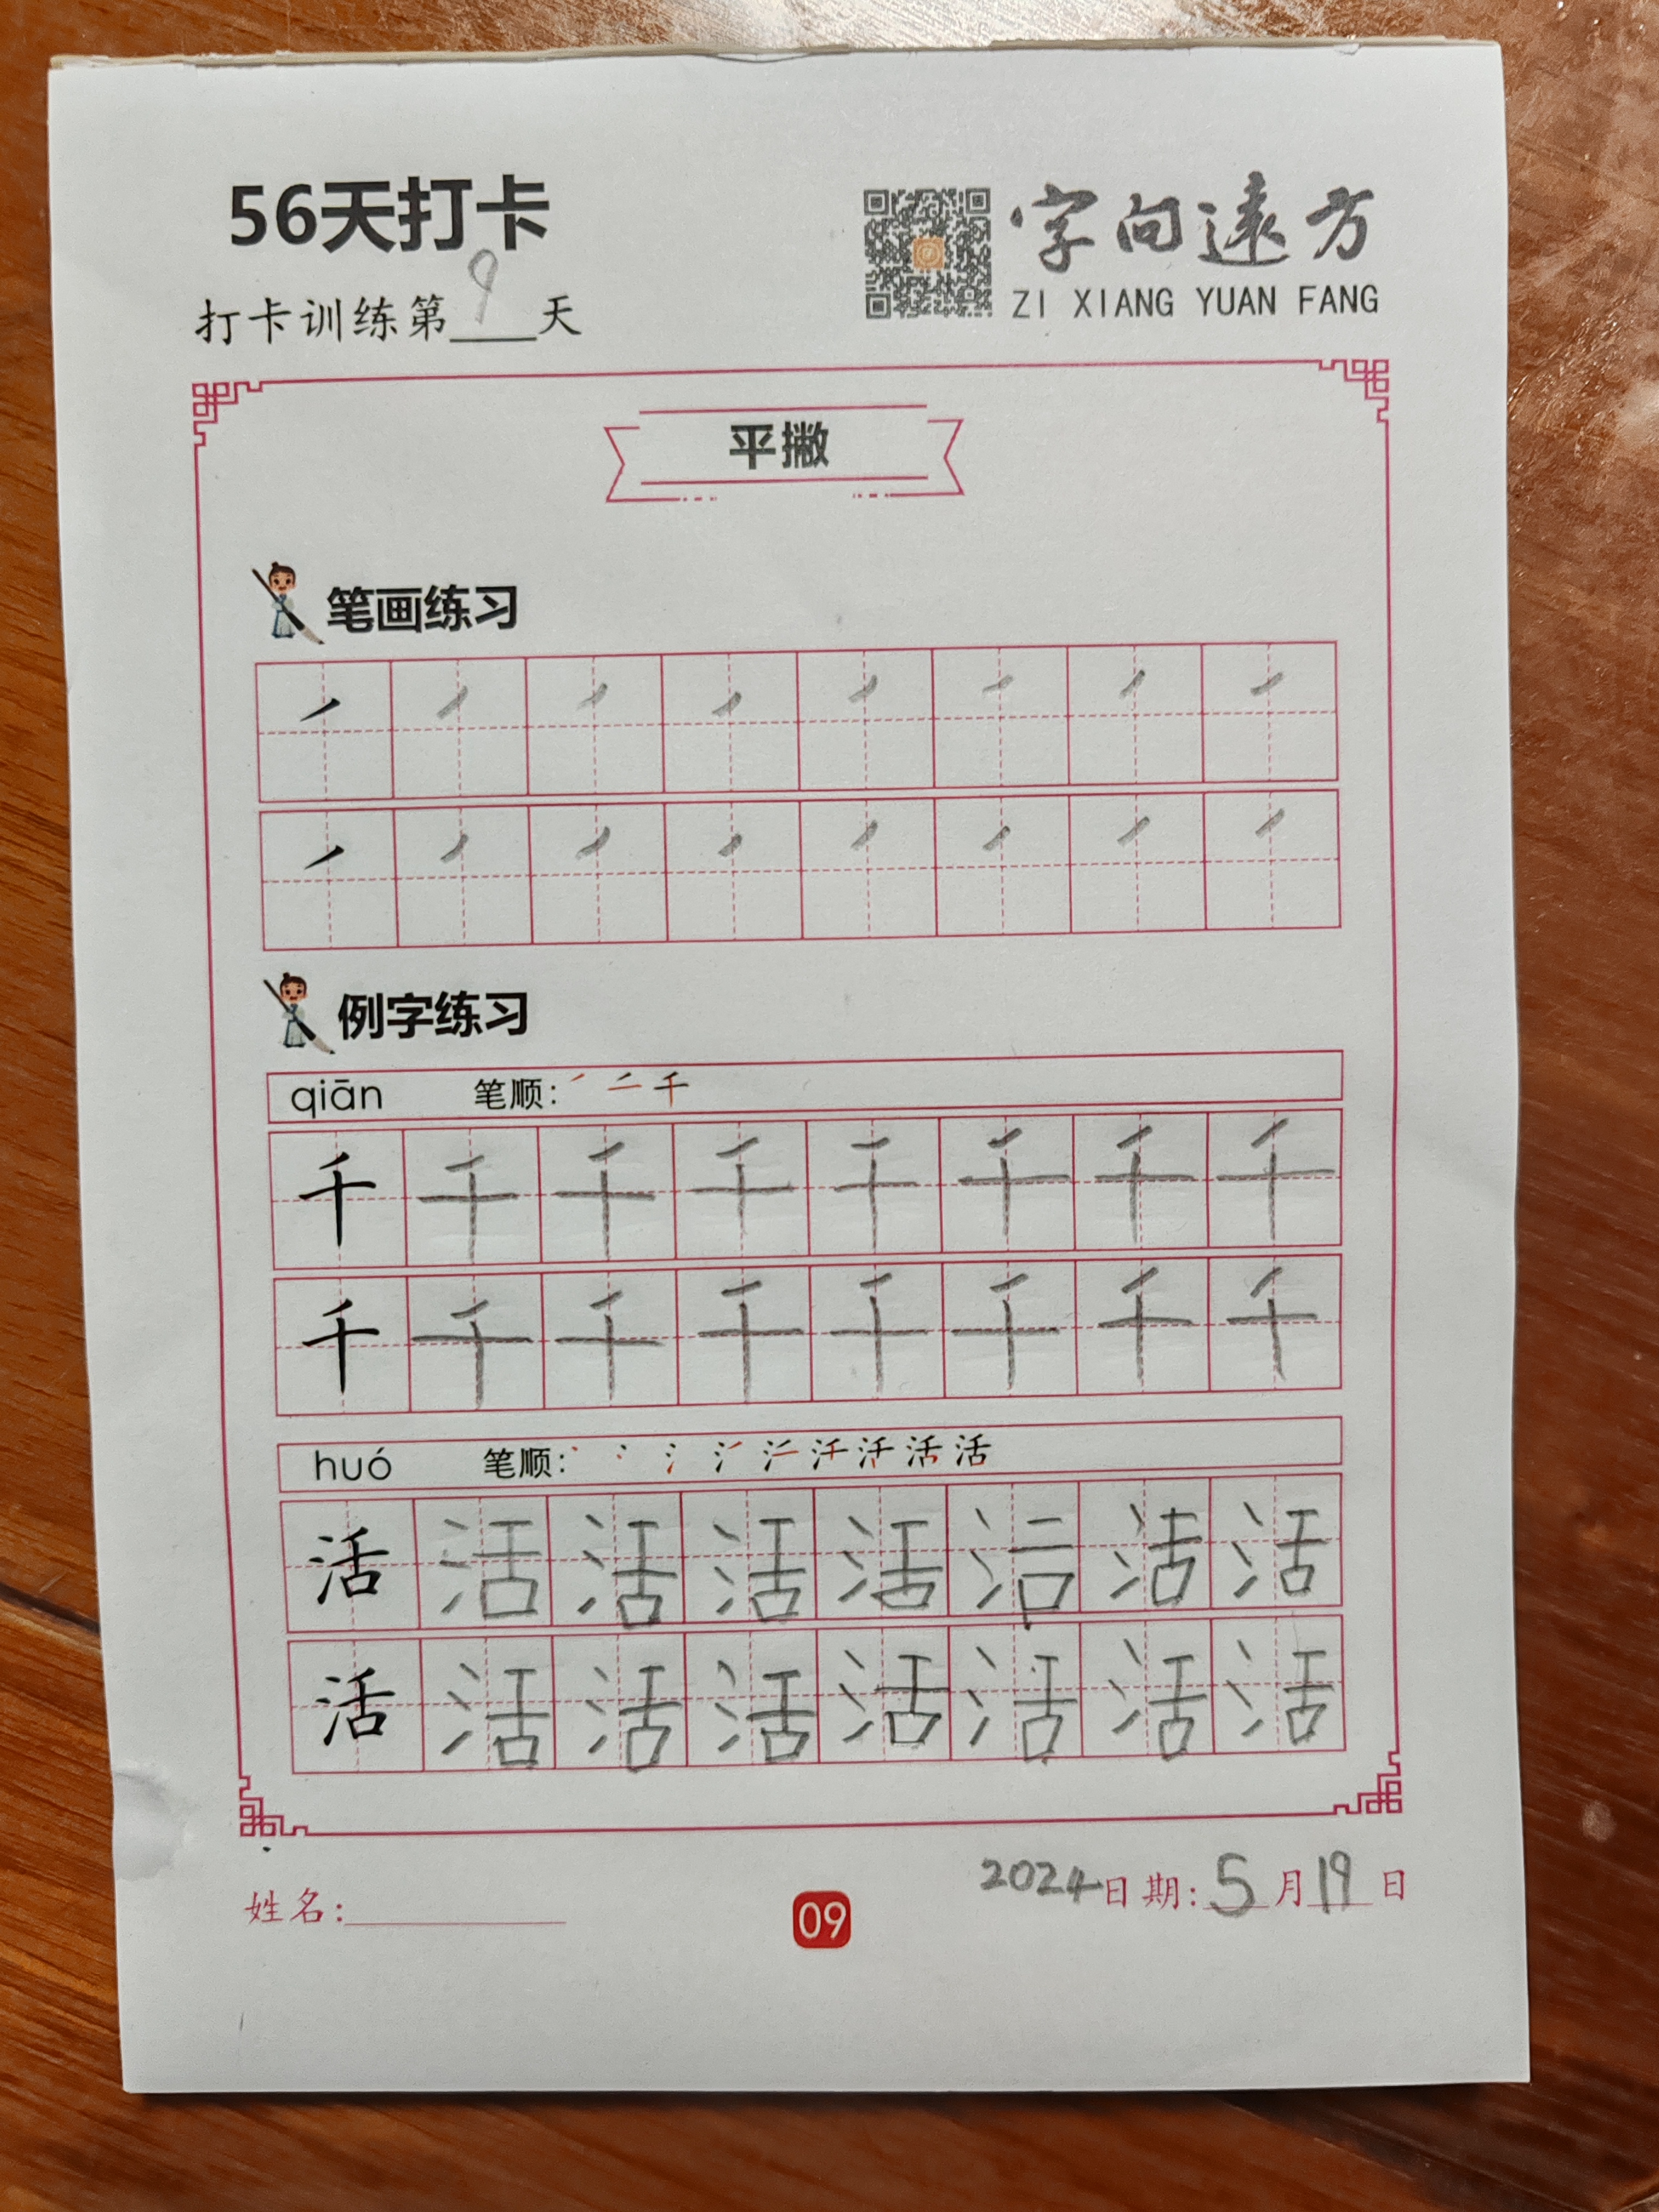 56天打卡
字向遠方
ZI XIANG YUAN FANG
打卡训练第9天
平撇
笔画练习
例字练习
qiān 笔顺: 丿 二 千
千 千 千 千 千 千 千 千
千 千 千 千 千 千 千 千
huó 笔顺: 活
活 活 活 活 活 活 活
活 活 活 活 活 活 活 活
姓名:
09
2024日期:5月19日